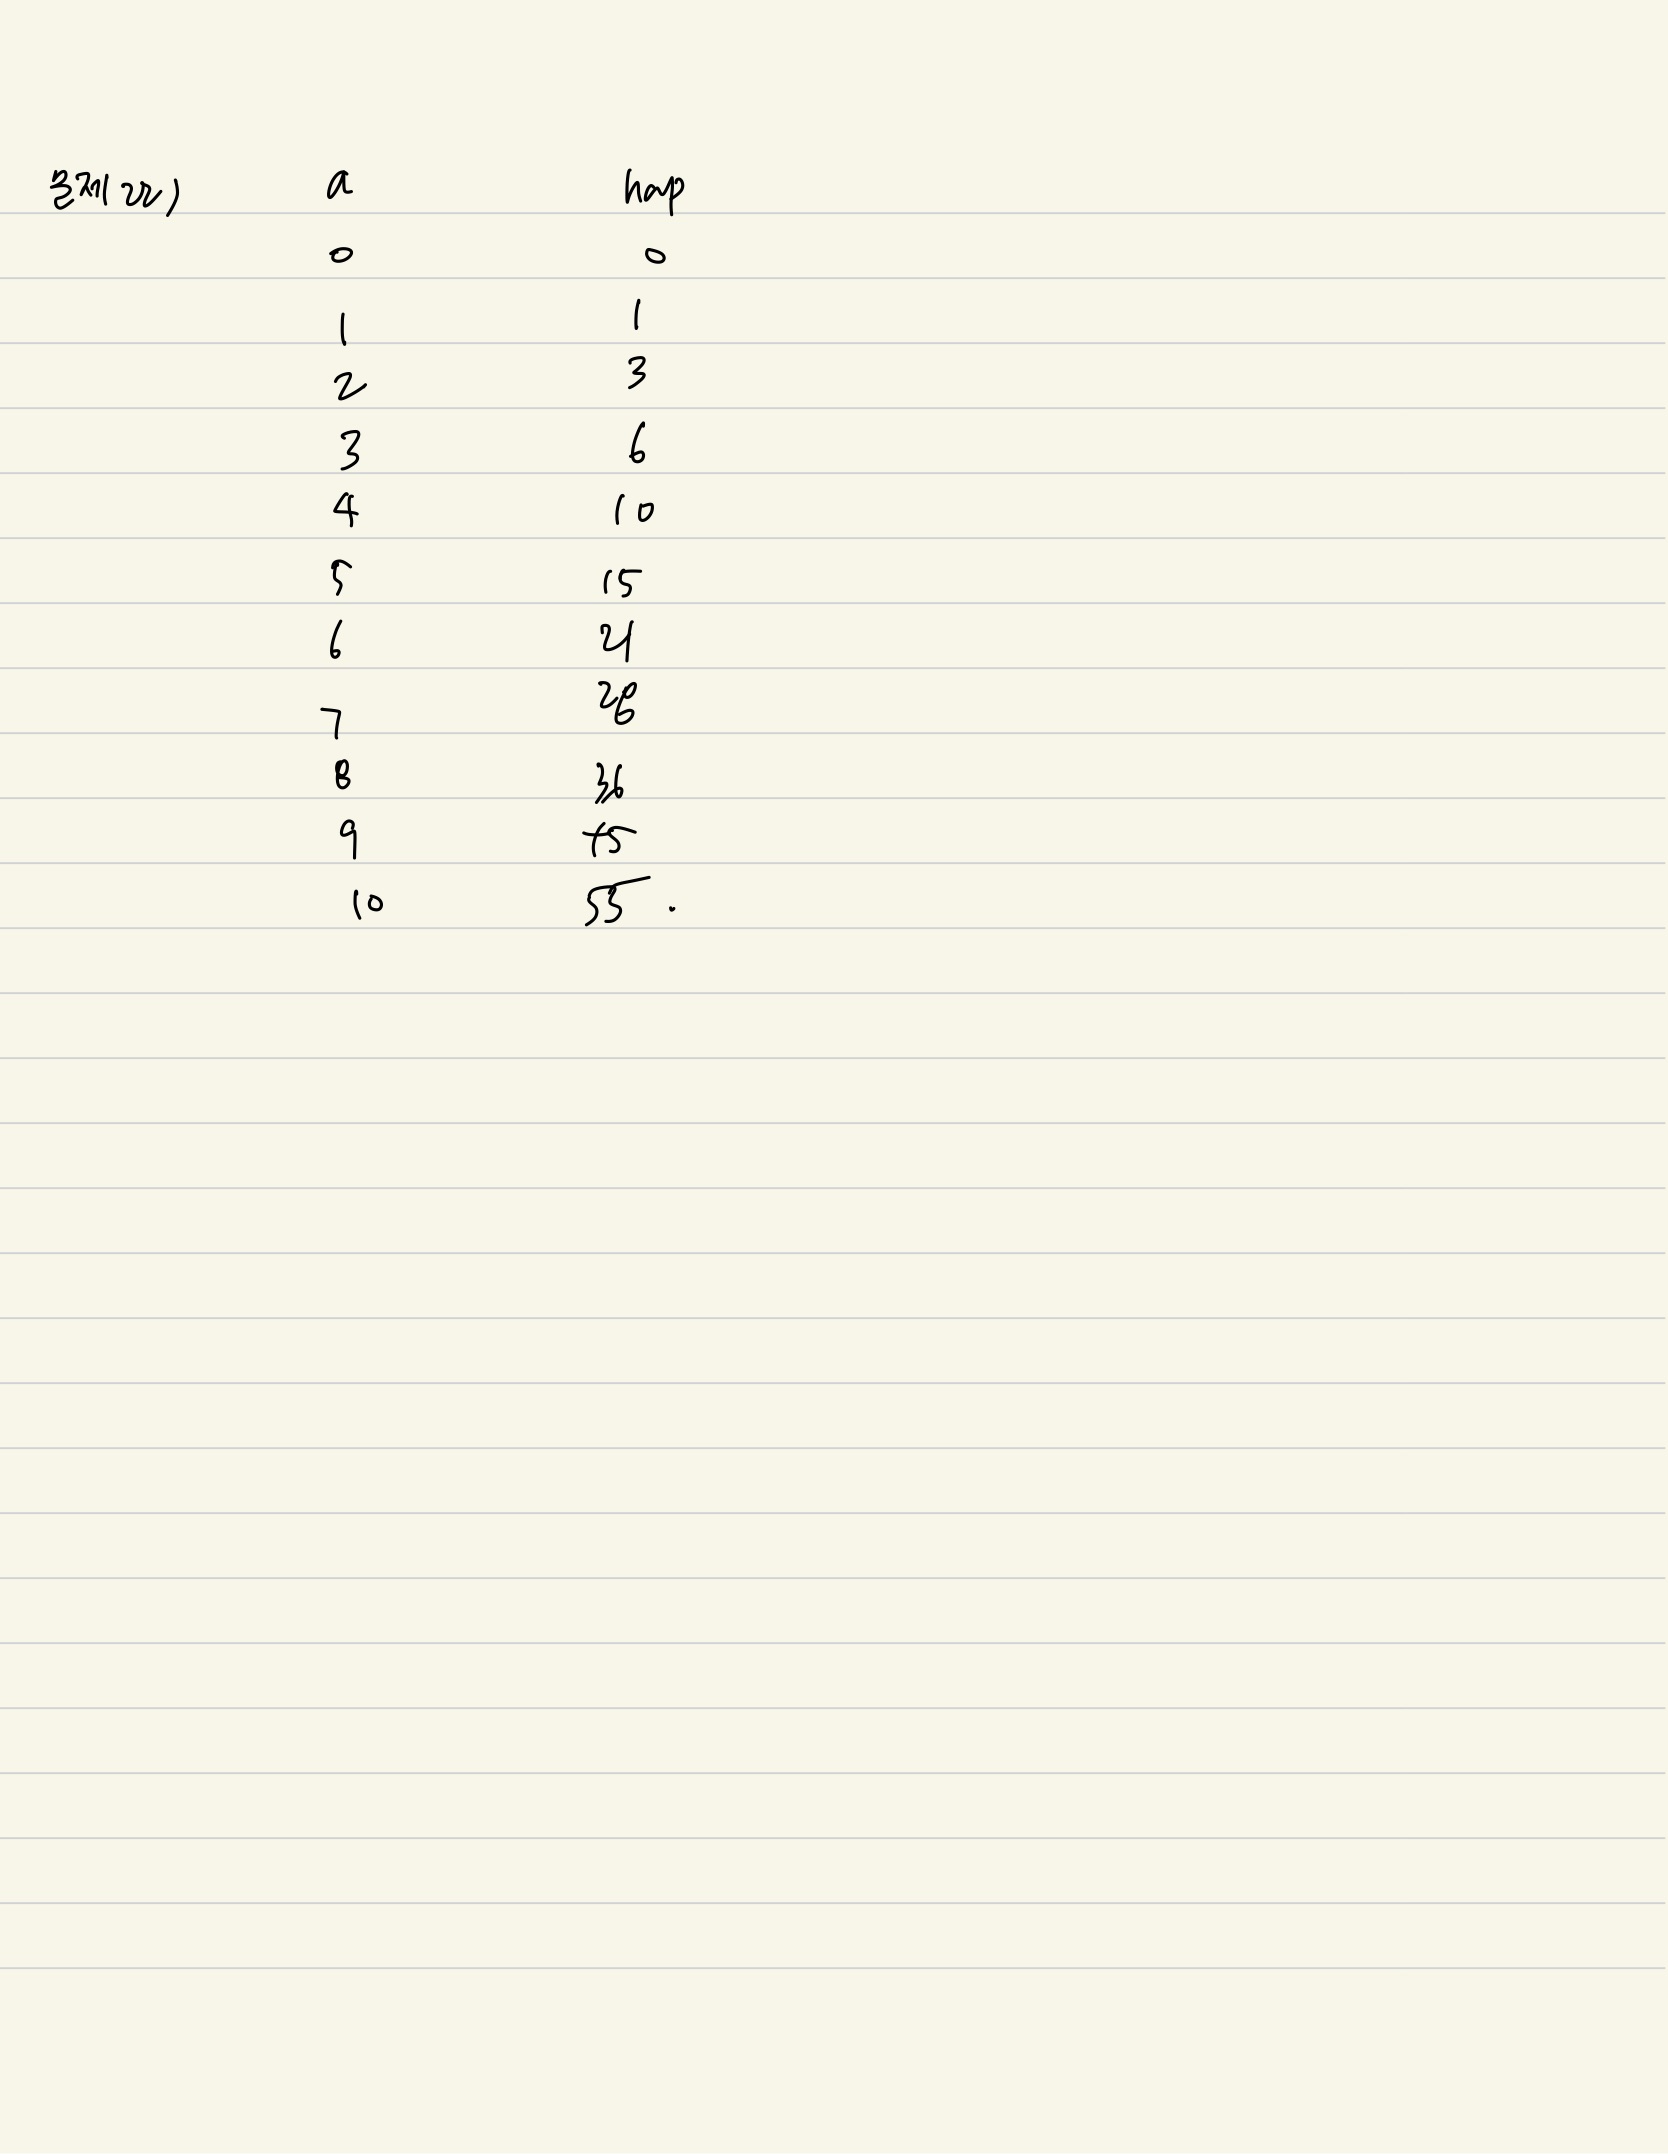 문제 22) a hap
0 0
1 1
2 3
3 6
4 10
5 15
6 21
7 28
8 36
9 45
10 55.